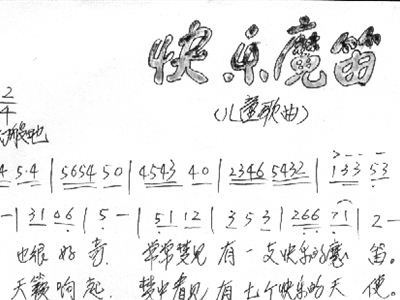 快乐魔笛
2
4
(儿童歌曲)
4 5·4 | 5654 5 0 | 4543 4·0 | 2346 5432 | 133 53
— | 31 06 | 5 — | 51 12 | 3 5 3 | 266 71 | 2 —
也很好奇 常常梦见 有一支快乐的魔 笛。
天籁响起 梦中看见 有七个快乐的天 使。